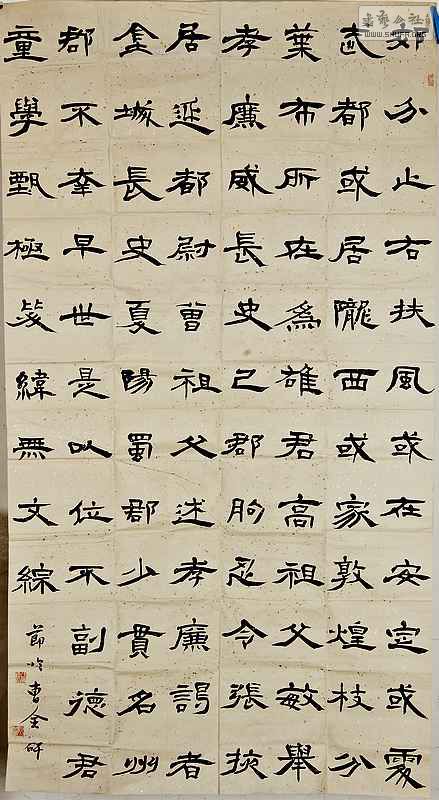 郊分止右扶風或在安定或處
武都或居隴西或家敦煌枝分
葉布所在為雄君高祖父敏舉
孝廉威長史巴郡朐忍令張掖
居延都尉曾祖父述孝廉謁者
金城長史夏陽蜀郡少貫名州
郡不幸早世是以位不副德君
童學甄極毖緯無文綜
節臨曹全碑